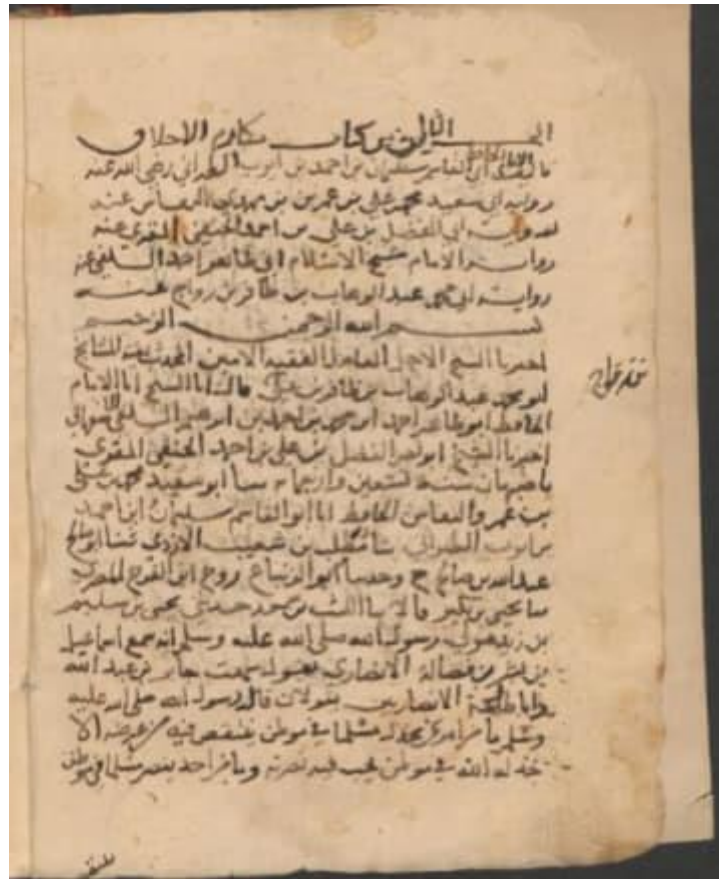 الجزء الثاني من كتاب مكارم الاخلاق
تاليف الامام ابي القاسم سليمان بن احمد بن ايوب الطبراني رضي الله عنه
رواية ابي سعيد محمد بن علي بن عمر بن مهدي النقاش عنه
رواية ابي الفضل بن علي بن احمد الحنفي المقري عنه
رواية الامام شيخ الاسلام ابي طاهر احمد السلفي عنه
رواية ابي محمد عبد الوهاب بن ظافر بن رواج عنه
بسم الله الرحمن الرحيم
اخبرنا الشيخ الاجل العالم الفقيه الامين المحدث
ابو محمد عبد الوهاب بن ظافر بن علي قال انا الشيخ انا الامام
الحافظ ابو طاهر احمد بن محمد بن احمد بن ابرهيم السلفي الاصبهاني
اخبرنا الشيخ ابو نصر الفضل بن علي بن احمد الحنفي المقري
باصبهان سنة تسعين واربعماية نبا ابو سعيد محمد بن علي
بن عمرو النقاش الحافظ انا ابو القاسم سليمان ابن احمد
بن ايوب الطبراني نبا مطلب بن شعيب الازدي ثنا ابو صالح
عبد الله بن صالح ح وحدثنا ابو الزنباع روح ابن الفرج المصري
نبا يحيى بن بكير قالا نبا الليث بن سعد حدثني يحيى بن سليم
بن زيد مولى رسول الله صلى الله عليه وسلم انه سمع اسماعيل
بن بشير من فضالة الانصاري يقول سمعت جابر بن عبد الله
وابا طلحة الانصاريين يقولان قال رسول الله صلى الله عليه
وسلم ما من امرئ يخذل مسلما في موطن ينتقص فيه من عرضه الا
خذله الله في موطن يحب فيه نصرته وما من احد ينصر مسلما في موطن